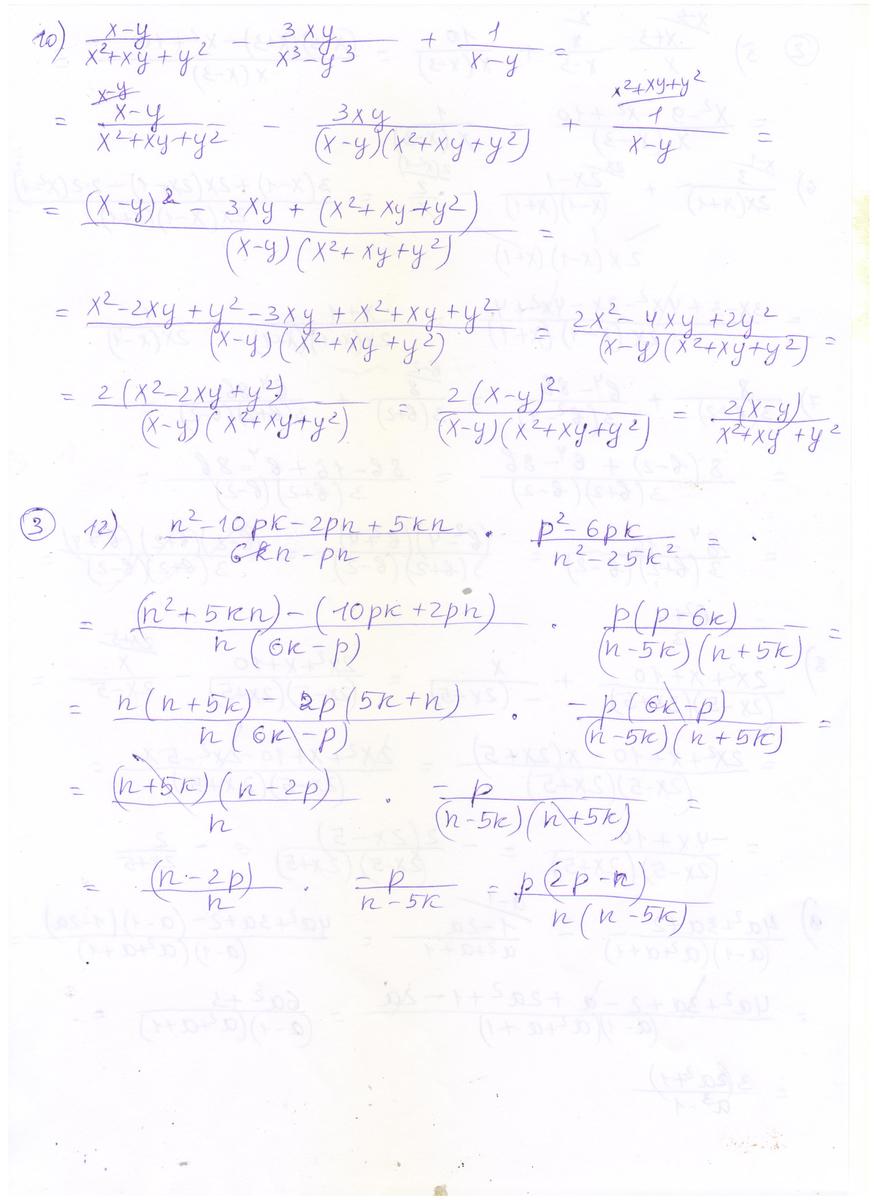 10) (x-y)/(x²+xy+y²) - 3xy/(x³-y³) + 1/(x-y) =
= (x-y)/ (x-y)/(x²+xy+y²) - 3xy/((x-y)(x²+xy+y²)) + (x²+xy+y²)/ 1/(x-y) =
= ((x-y)² - 3xy + (x²+xy+y²))/((x-y)(x²+xy+y²)) =
= (x²-2xy+y²-3xy+x²+xy+y²)/((x-y)(x²+xy+y²)) = (2x²-4xy+2y²)/((x-y)(x²+xy+y²)) =
= 2(x²-2xy+y²)/((x-y)(x²+xy+y²)) = 2(x-y)²/((x-y)(x²+xy+y²)) = 2(x-y)/(x²+xy+y²)
3 12) (n²-10pk-2pn+5kn)/(6kn-pn) · (p²-6pk)/(n²-25k²) =
= ((n²+5kn)-(10pk+2pn))/(n(6k-p)) · p(p-6k)/((n-5k)(n+5k)) =
= (n(n+5k)-2p(5k+n))/(n(6k-p)) · -p(6k-p)/((n-5k)(n+5k)) =
= (n+5k)(n-2p)/n · -p/((n-5k)(n+5k)) =
= (n-2p)/n · -p/(n-5k) = p(2p-n)/(n(n-5k))